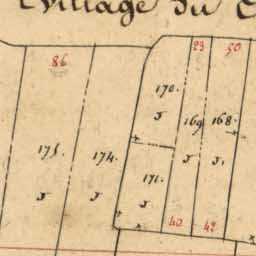 Village du
86
23
50
170.
J
169
168.
175.
174.
171.
J
J
J
J
J.
40
42